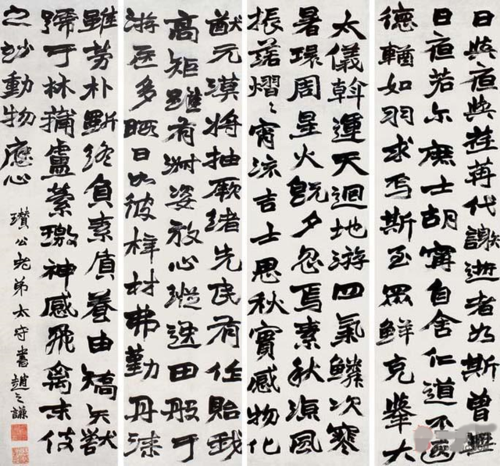 日與夜與荏苒代謝逝者如斯曾無
日夜若尔庶士胡寧自舍仁道不遐
德輶如羽求焉斯至眾鮮克舉大
太儀斡運天迴地游四氣鱗次寒
暑環周星火既夕忽焉素秋涼風
振落熠々宵流吉士思秋實感物化
猷元漠將抽厥緒先民有作貽我
高矩雖有淑姿放心縱逸田般于
游居多暇日如彼梓材弗勤丹漆
雖勞朴斲終負素質養由矯矢獸
號于林蒱盧縈激神感飛禽末伎
之妙動物應心
瓚公老弟太守書趙之謙